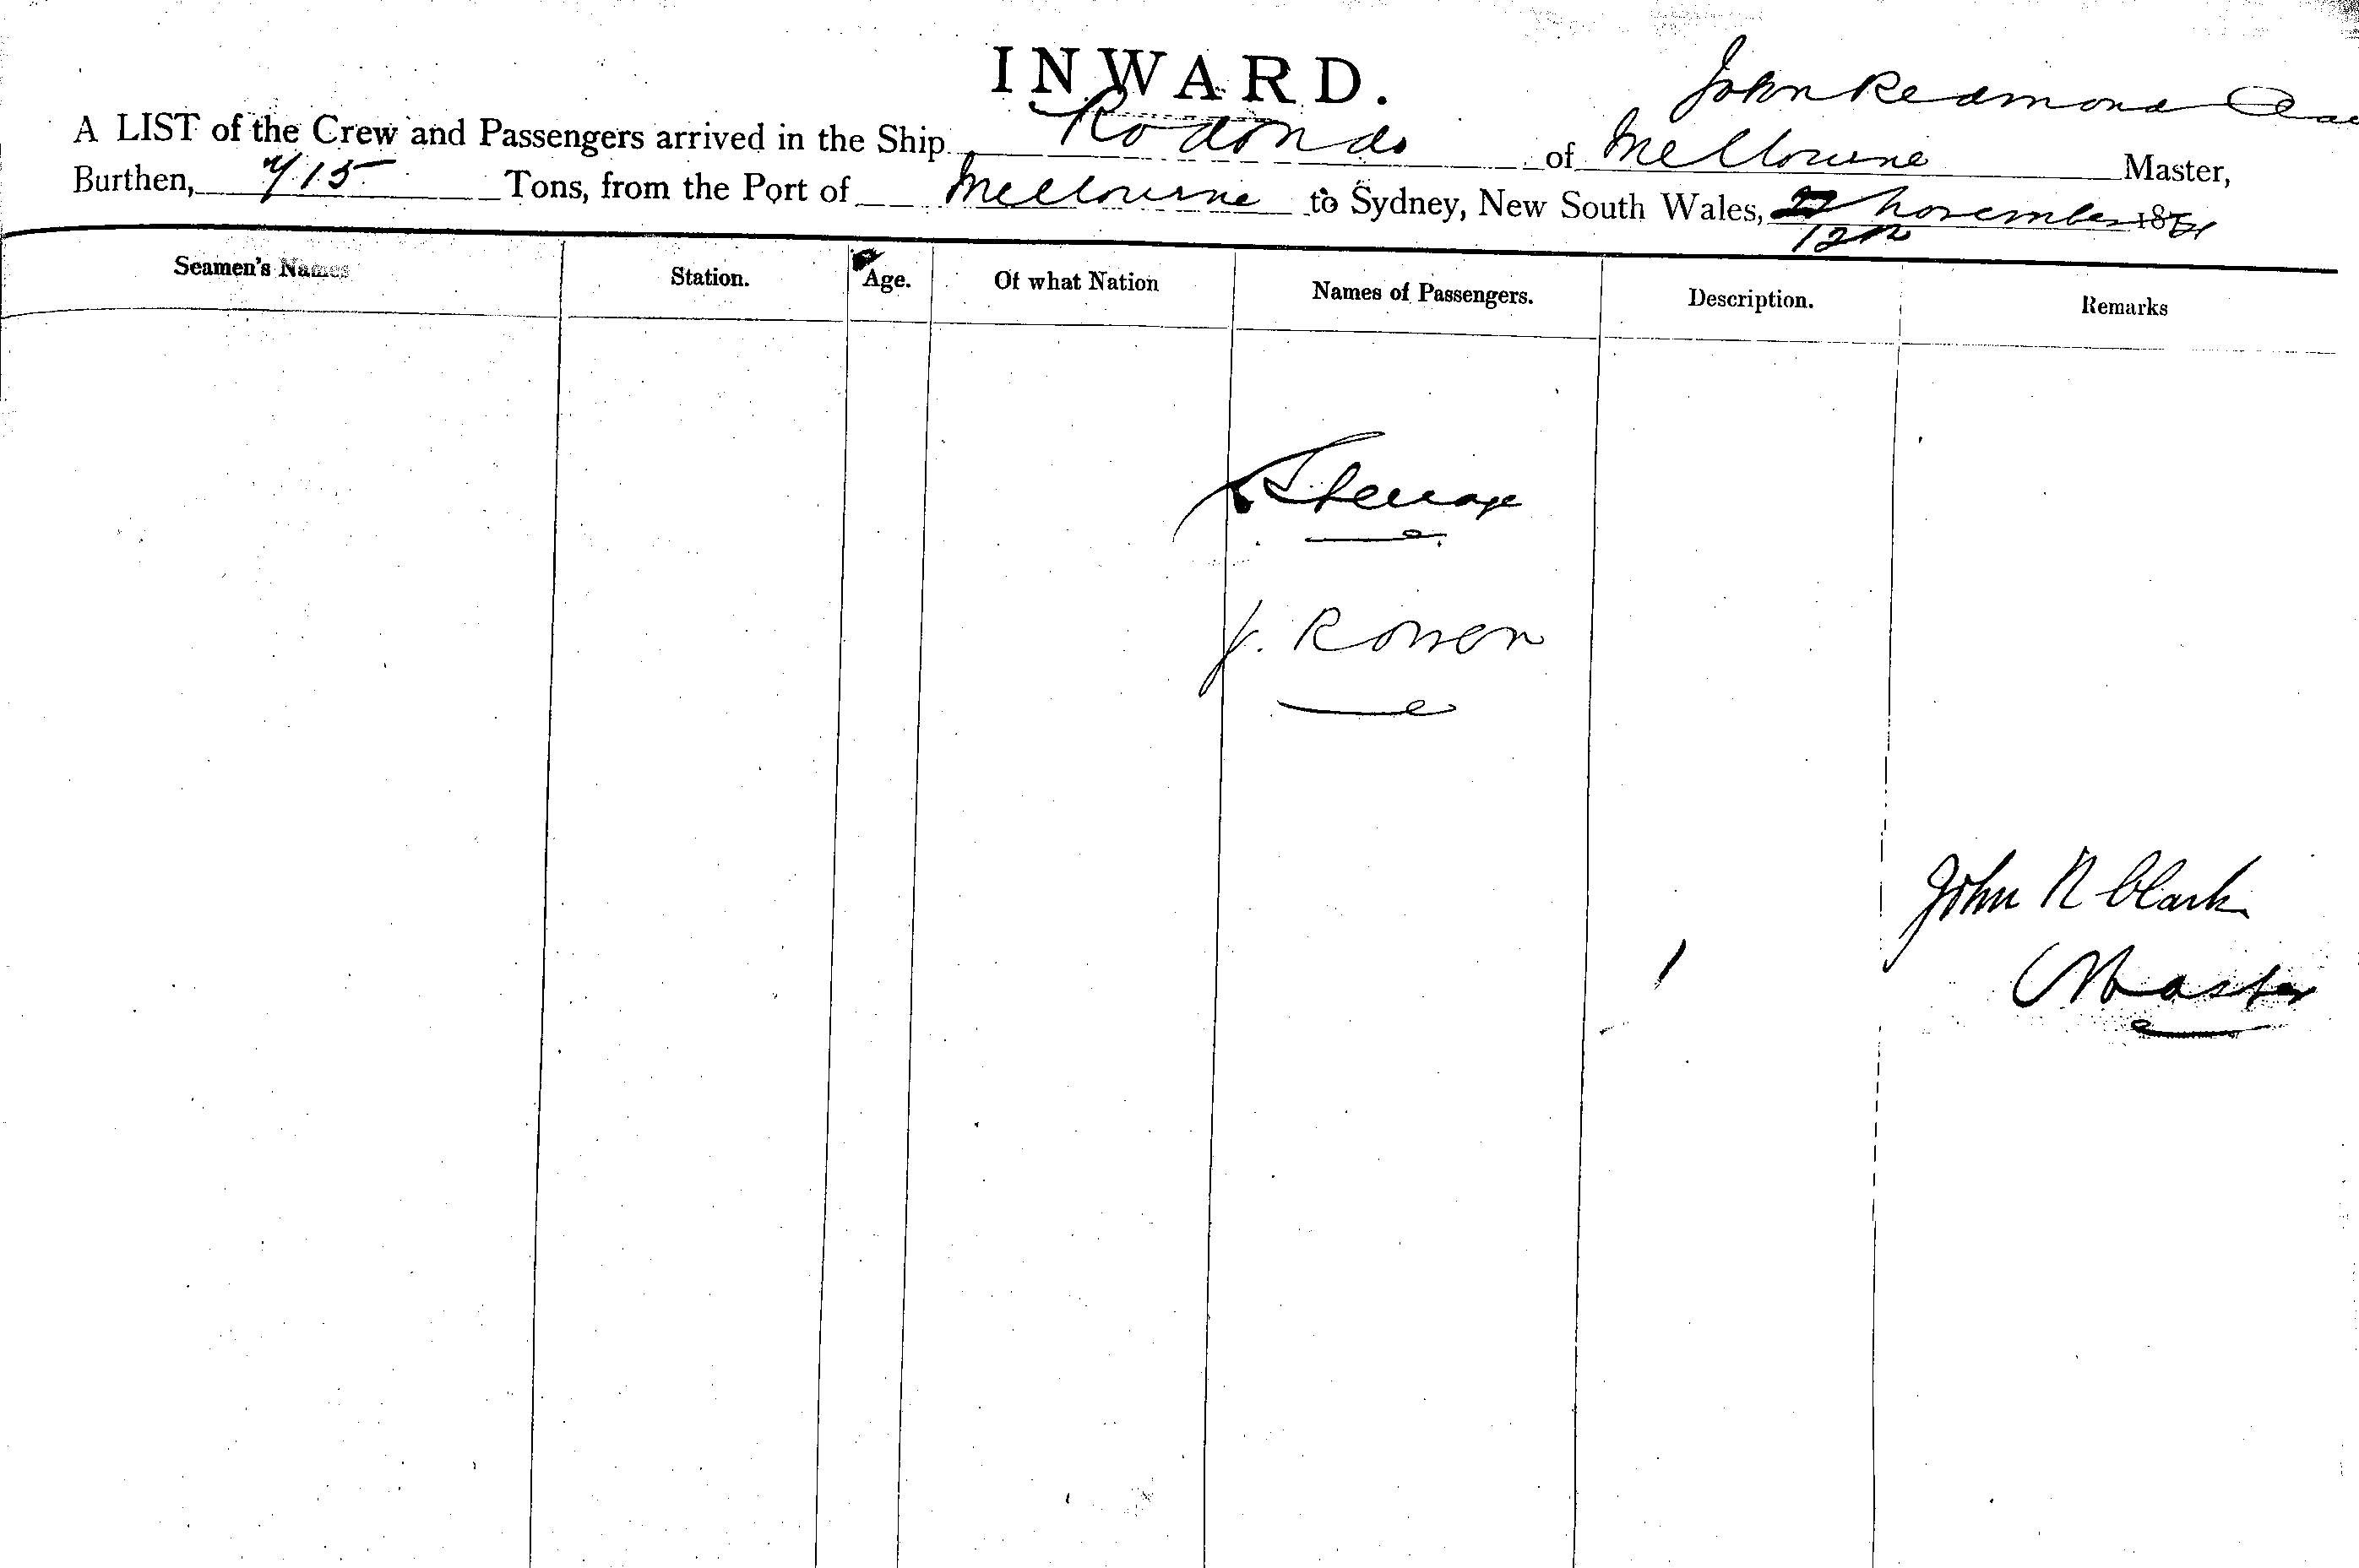 INWARD.
John Redmond
A LIST of the Crew and Passengers arrived in the Ship Rodondo of Melbourne Master,
Burthen, 715 Tons, from the Port of Melbourne to Sydney, New South Wales, 12th November 18
Seamen's Names Station. Age. Of what Nation Names of Passengers. Description. Remarks
Steerage
J. Rowen
John R Clark
Master